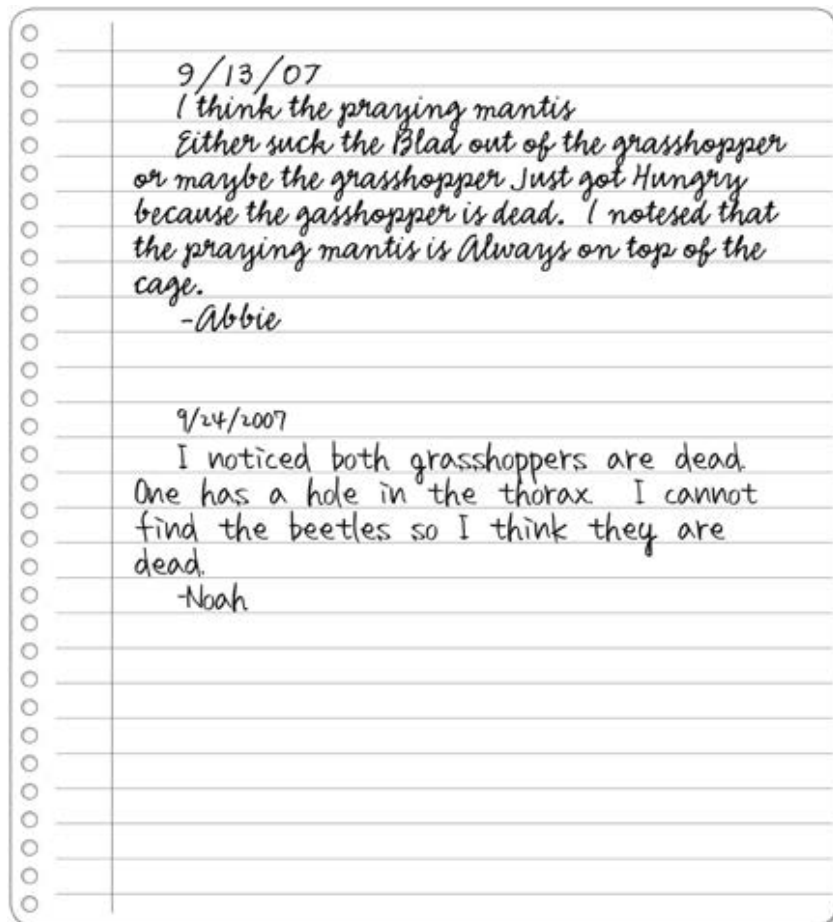 9/13/07
I think the praying mantis
Either suck the Blad out of the grasshopper
or maybe the grasshopper Just got Hungry
because the gasshopper is dead. I notesed that
the praying mantis is Always on top of the
cage.
-Abbie
9/24/2007
I noticed both grasshoppers are dead.
One has a hole in the thorax. I cannot
find the beetles so I think they are
dead.
-Noah